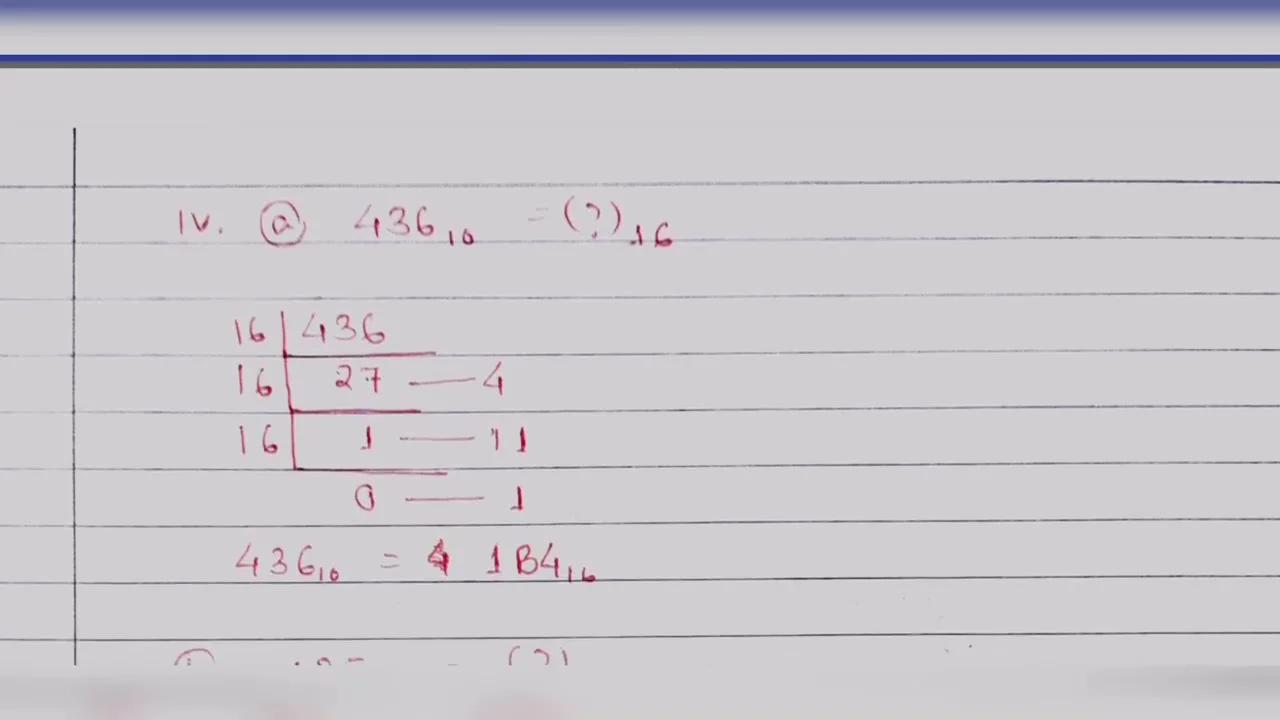 iv. ⓐ 436₁₀ = (?)₁₆
16 | 436
16 | 27 — 4
16 | 1 — 11
0 — 1
436₁₀ = 1B4₁₆